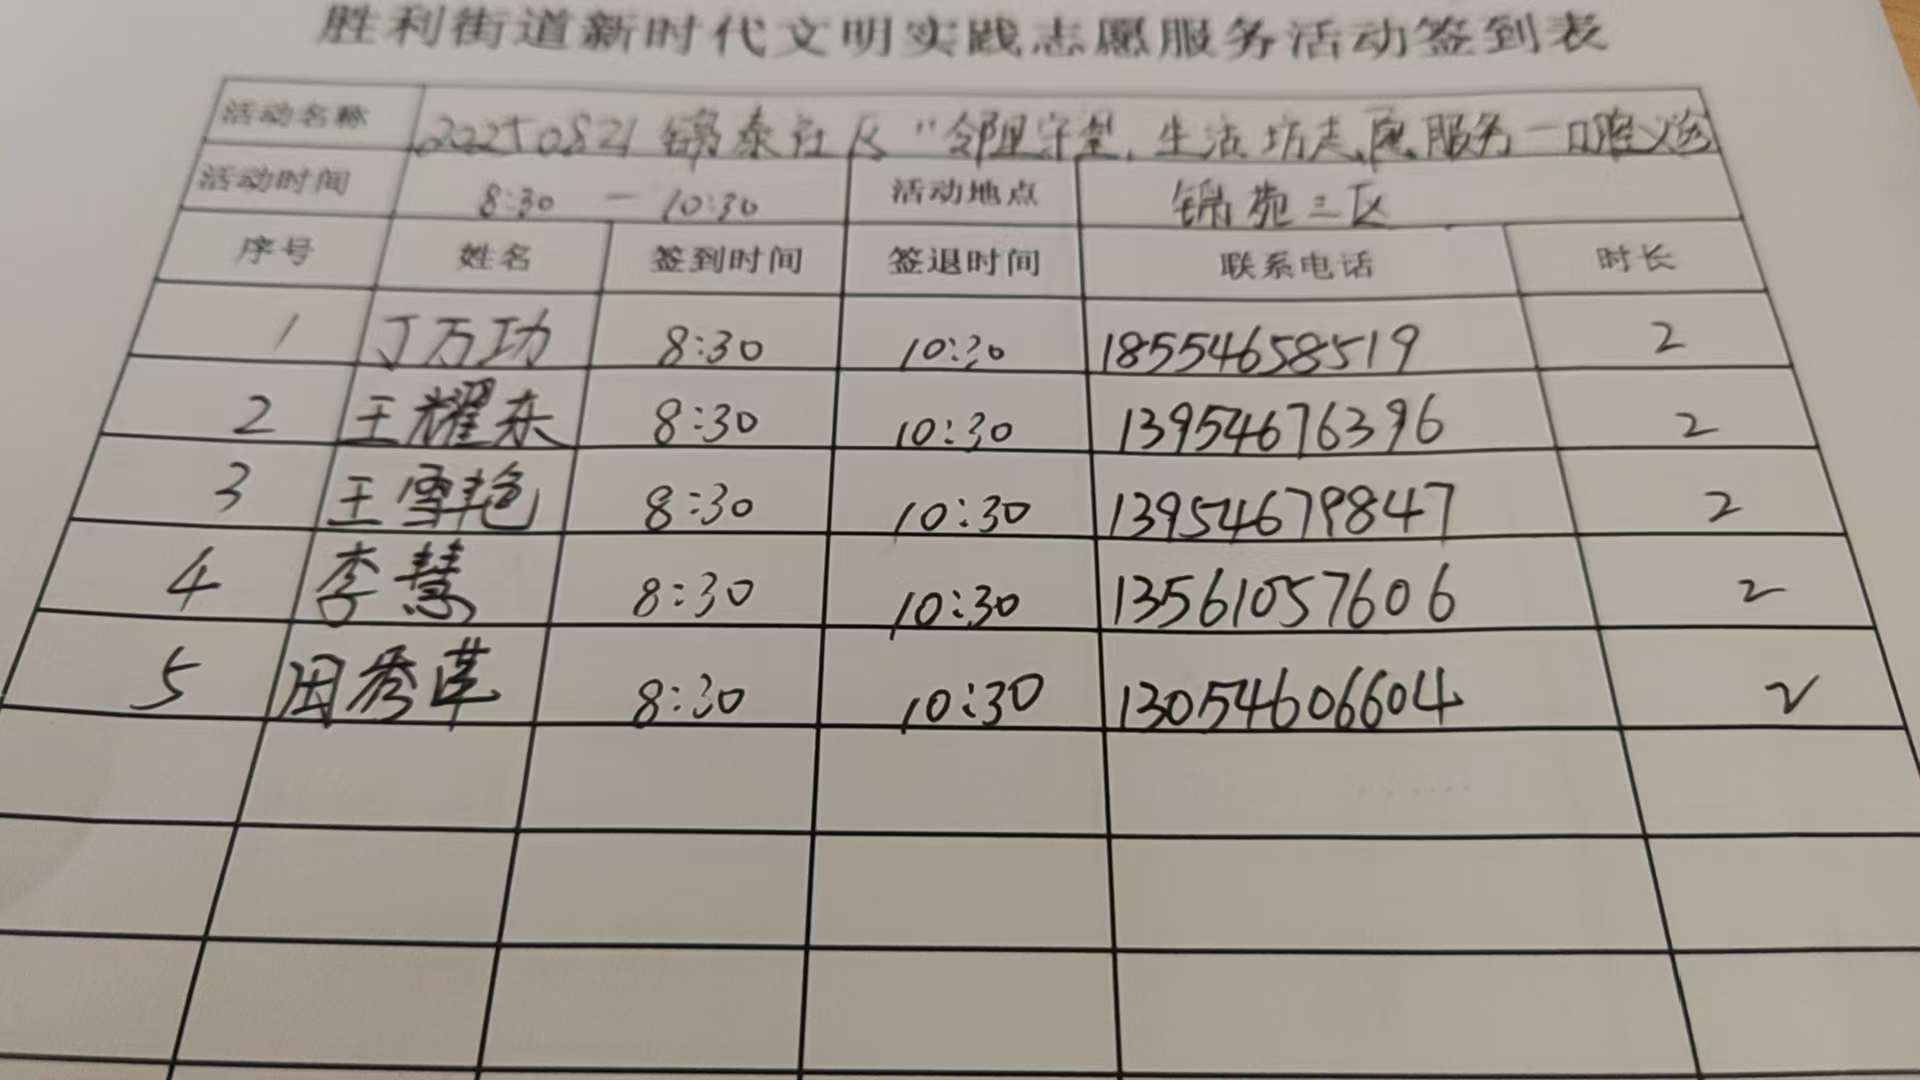 胜利街道新时代文明实践志愿服务活动签到表
活动名称 20250821 锦泰社区“邻里守望,生活坊志愿服务一口腔义诊
活动时间 8:30 — 10:30 活动地点 锦苑三区
序号 姓名 签到时间 签退时间 联系电话 时长
1 丁万功 8:30 10:30 18554658519 2
2 王耀东 8:30 10:30 13954676396 2
3 王雪艳 8:30 10:30 13954679847 2
4 李慧 8:30 10:30 13561057606 2
5 田秀莲 8:30 10:30 13054606604 2